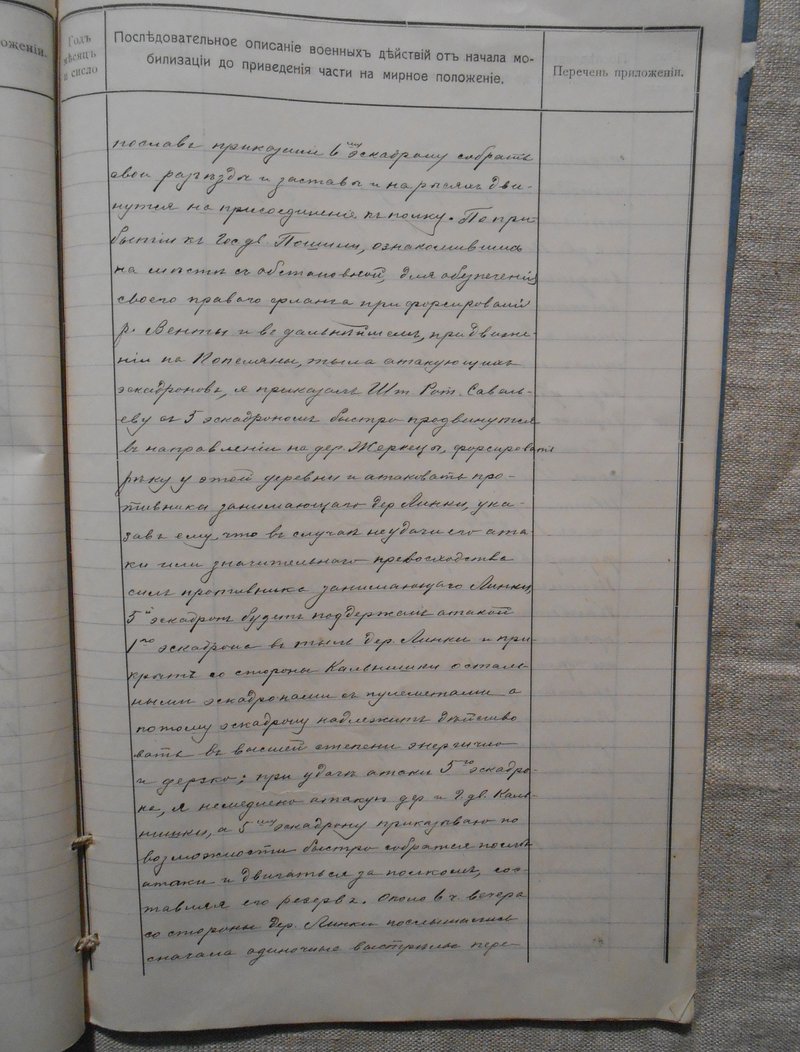 оженіи.
Годъ
мѣсяцъ
и число
Послѣдовательное описаніе военныхъ дѣйствій отъ начала мо-
билизаціи до приведенія части на мирное положеніе.
Перечень приложеній.
пославъ приказаніе 6му эскадрону собрать
свои разъѣзды и заставы и на рысяхъ дви-
нутся на присоединеніе къ полку. По при-
бытіи къ Гос. дв. Пошили, ознакомившись
на мѣстѣ съ обстановкой, для обезпеченія
своего праваго фланга при форсированіи
р. Венты и въ дальнѣйшемъ, при движе-
ніи на Попеляны, тыла атакующихъ
эскадроновъ, я приказалъ Шт. Рот. Савель-
еву съ 5 эскадрономъ быстро продвинутся
въ направленіи на дер. Жеркцы, форсировать
рѣку у этой деревни и атаковать про-
тивника занимающаго дер. Линки, ука-
завъ ему, что въ случаѣ неудачи его ата-
ки или значительнаго превосходства
силъ противника занимающаго Линки,
5й эскадронъ будетъ поддержанъ атакой
1го эскадрона въ тылъ дер. Линки и при-
крытъ со стороны Кальнишки осталь-
ными эскадронами съ пулеметами а
потому эскадрону надлежитъ дѣйство
вать въ высшей степени энергично
и дерзко; при удачѣ атаки 5го эскадро-
на, я немедлено атакую дер. и Г. дв. Каль-
нишки, а 5му эскадрону приказываю по
возможности быстро собратся послѣ
атаки и двигаться за полкомъ, сос-
тавляя его резервъ. Около 6 ч. вечера
со стороны дер. Линки послышались
сначала одиночные выстрѣлы пере-